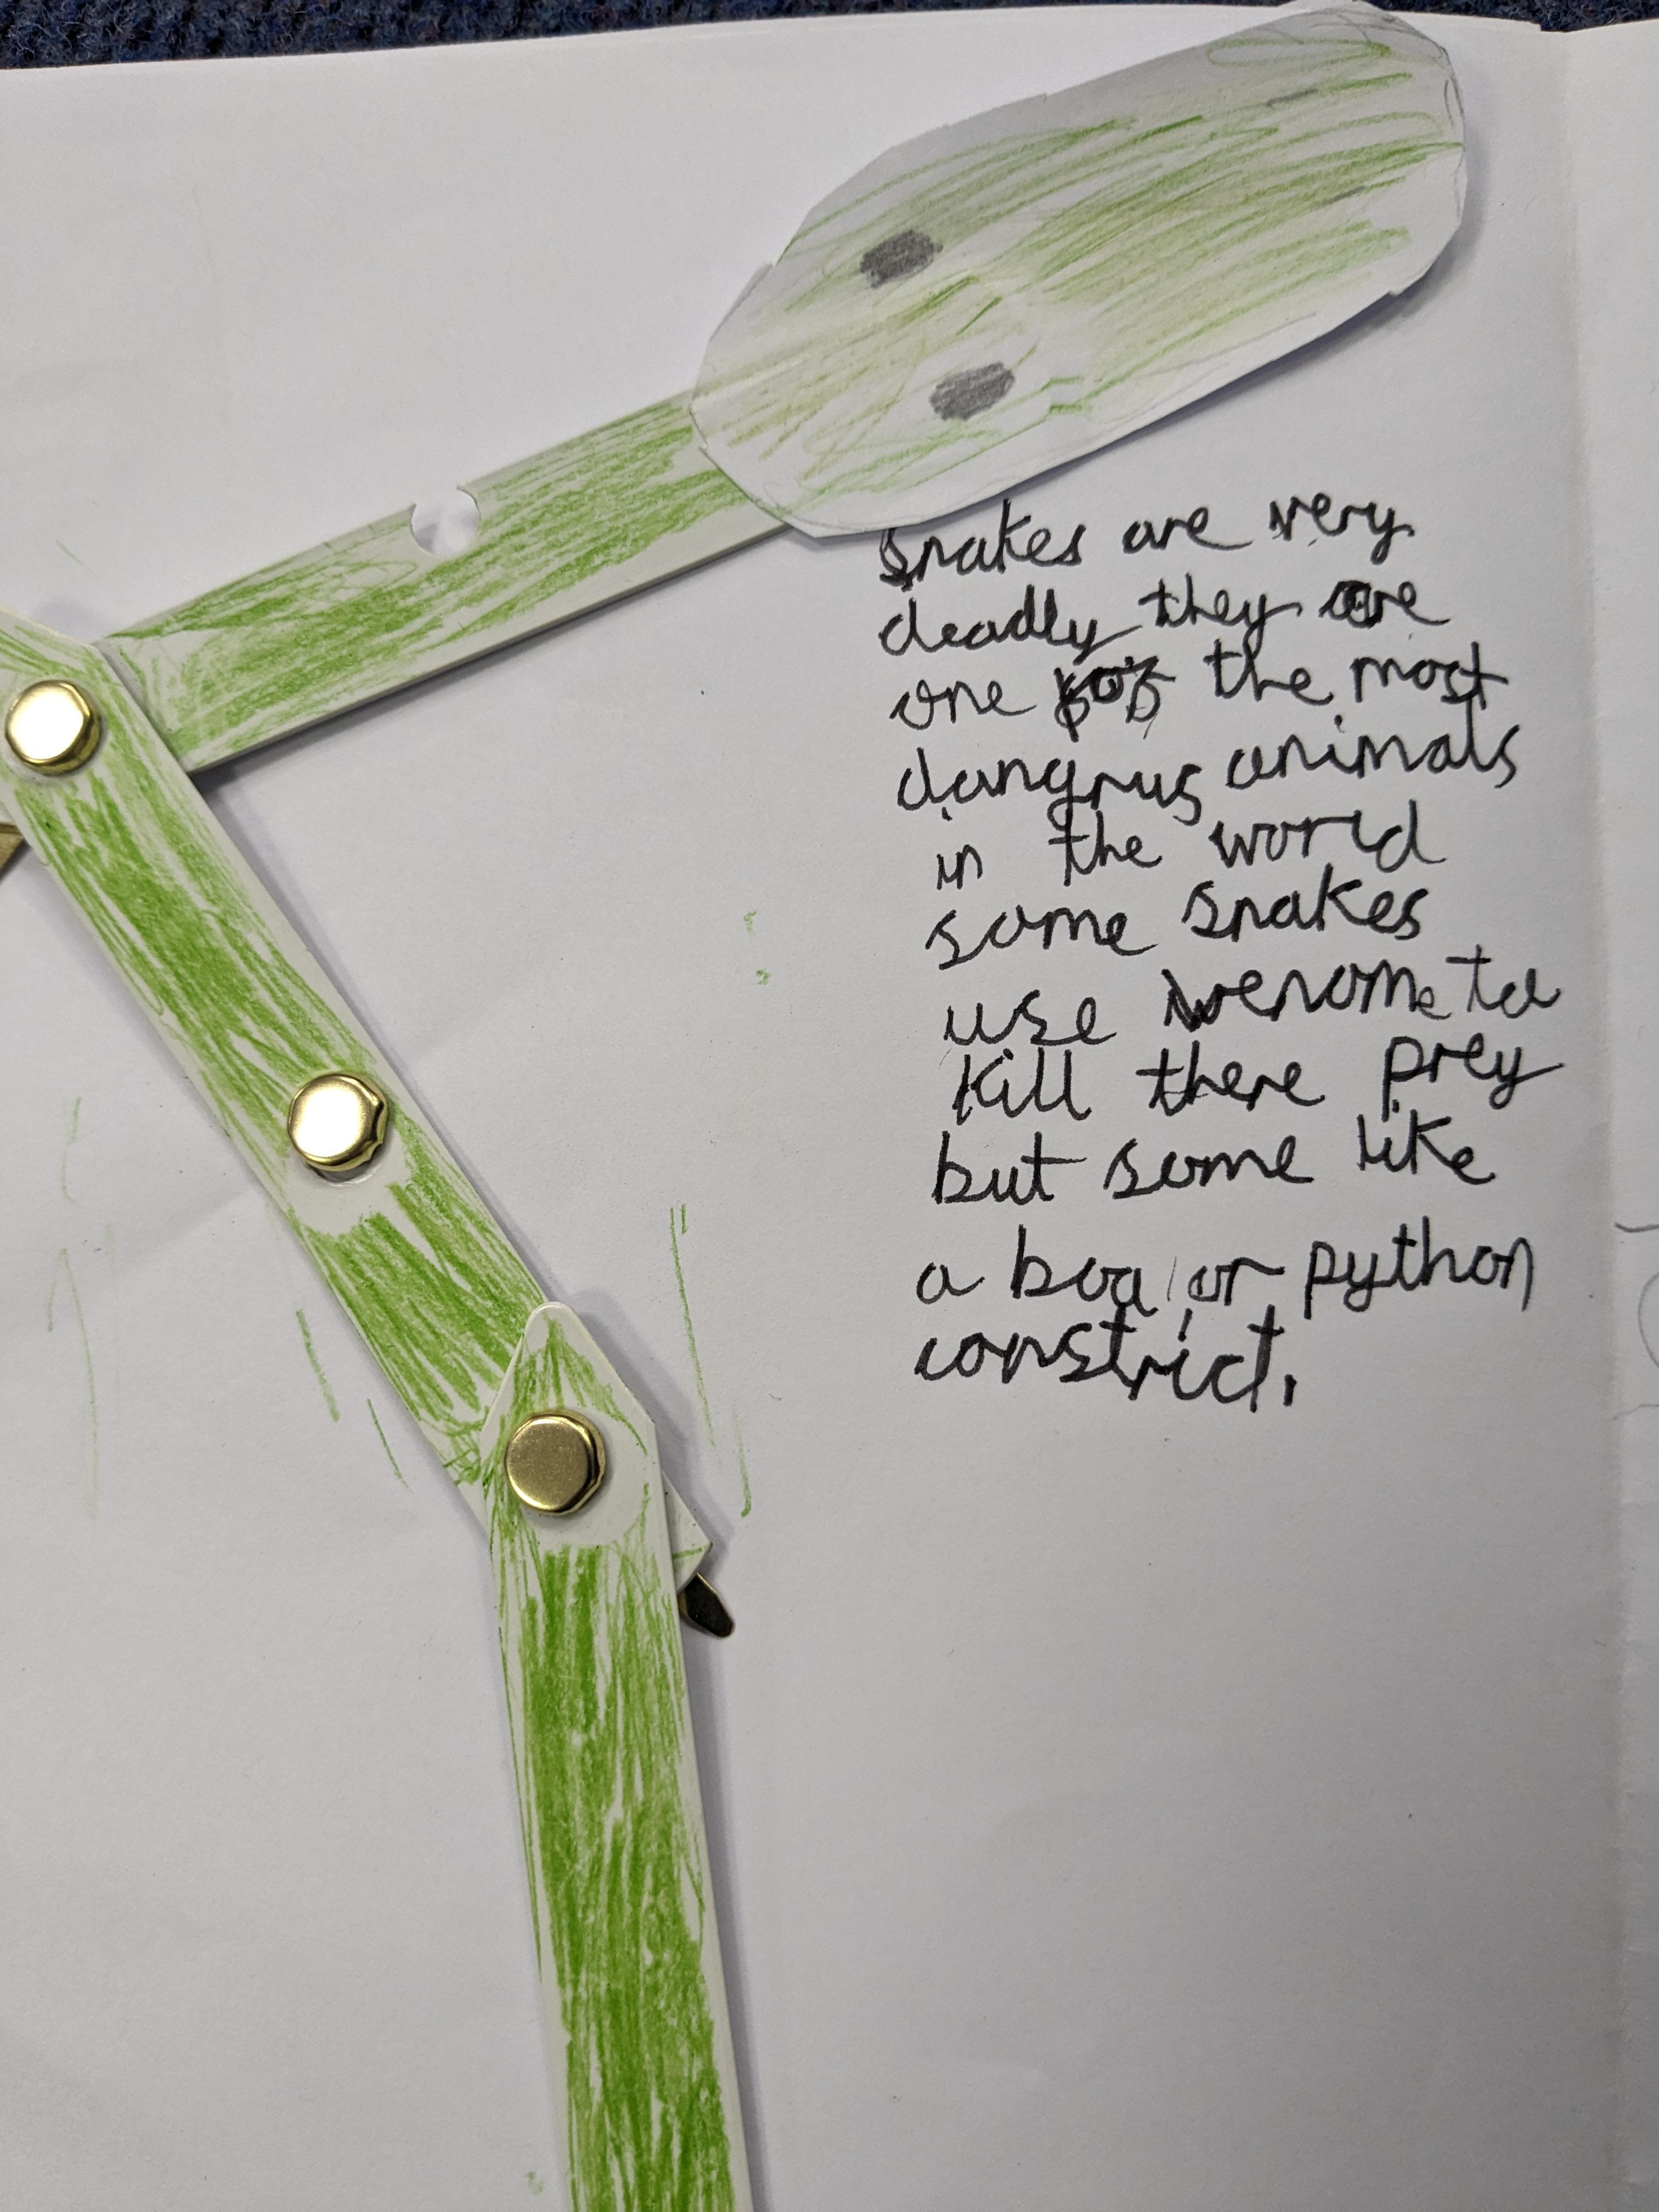 Snakes are very
deadly they are
one of the most
dangrus animals
in the world
some snakes
use venom to
kill there prey
but some like
a boa or python
constrict.